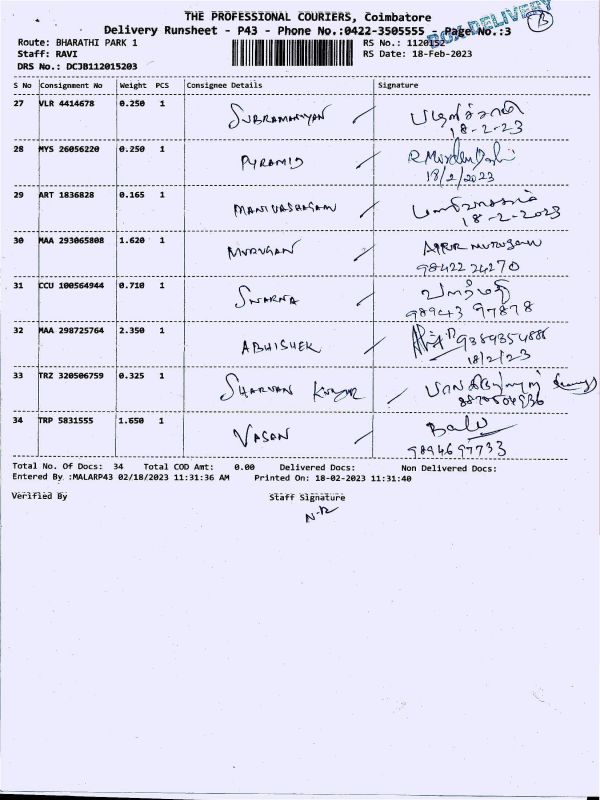 THE PROFESSIONAL COURIERS, Coimbatore
Delivery Runsheet - P43 - Phone No.:0422-3505555 - Page No.:3
BOX DELIVERY
Route: BHARATHI PARK 1
RS No.: 1120152
Staff: RAVI
RS Date: 18-Feb-2023
DRS No.: DCJB112015203
S No Consignment No Weight PCS Consignee Details Signature
27 VLR 4414678 0.250 1 SUBRAMANIYAN
18-2-23
28 MYS 26056220 0.250 1 PYRAMID
18/2/2023
29 ART 1836828 0.165 1 MANIVASHAGAM
18-2-2023
30 MAA 293065808 1.620 1 MURUGAN
98422 24270
31 CCU 100564944 0.710 1 SWARNA
98943 97878
32 MAA 298725764 2.350 1 ABHISHEK 9389354888
18/2/23
33 TRZ 320506759 0.325 1 SHARVAN KUMAR
34 TRP 5831555 1.650 1 VASAN Balu
9894697733
Total No. Of Docs: 34 Total COD Amt: 0.00 Delivered Docs: Non Delivered Docs:
Entered By :MALARP43 02/18/2023 11:31:36 AM Printed On: 18-02-2023 11:31:40
Verified By Staff Signature